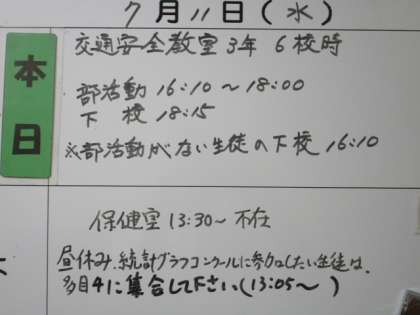 7月11日(水)
本日
交通安全教室3年 6校時
部活動 16:10～18:00
下校 18:15
※部活動がない生徒の下校 16:10
保健室 13:30～不在
昼休み、統計グラフコンクールに参加したい生徒は、
多目4に集合して下さい(13:05～ )